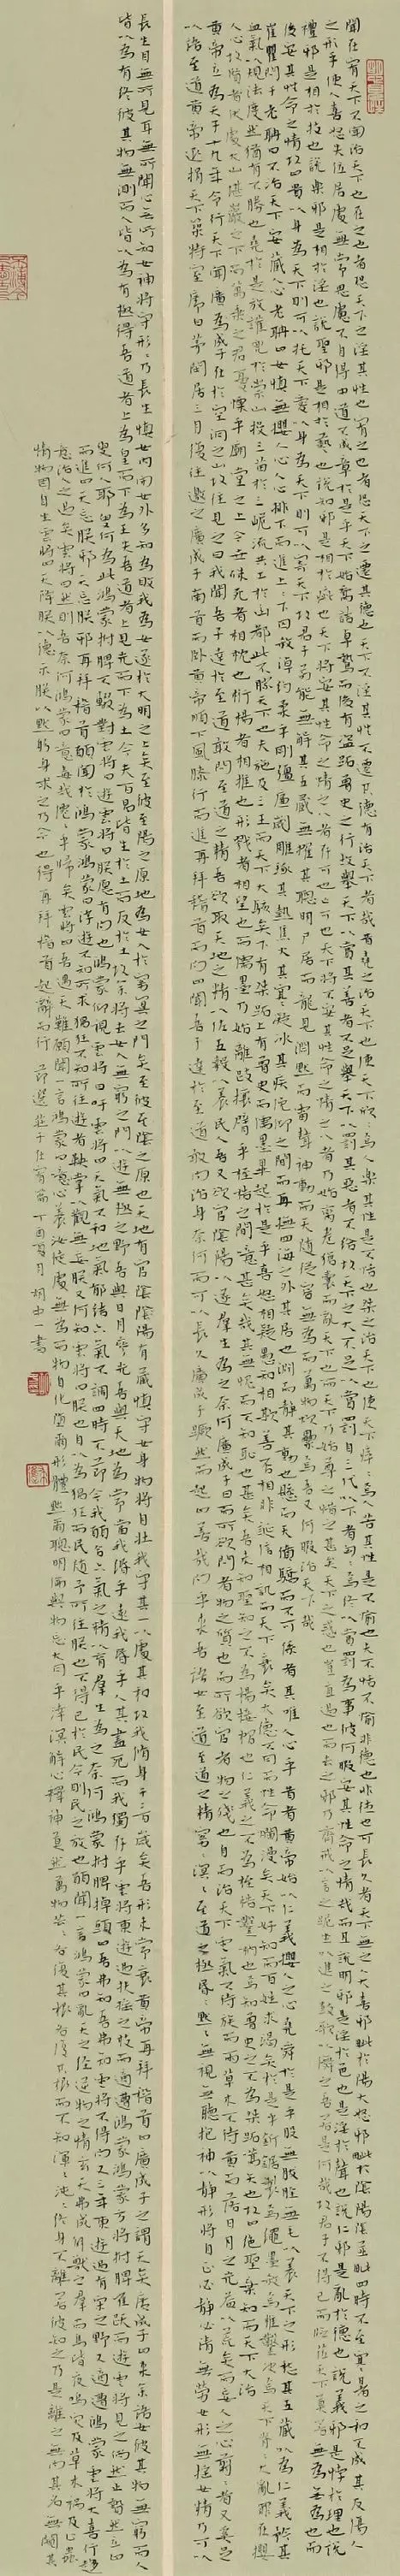 聞在宥天下不聞治天下也在之也者恐天下之淫其性也宥之也者恐天下之遷其德也天下不淫其性不遷其德有治天下者哉昔堯之治天下也使天下欣欣焉人樂其性是不恬也桀之治天下也使天下瘁瘁焉人苦其性是不愉也夫不恬不愉非德也非德也可長久者天下無之人大喜邪毗於陽大怒邪毗於陰陰陽並毗四時不至寒暑之和不成其反傷人
之形乎使人喜怒失位居處無常思慮不自得中道不成章於是乎天下始喬詰卓鷙而後有盜跖曾史之行故舉天下以賞其善者不足舉天下以罰其惡者不給故天下之大不足以賞罰自三代以下者匈匈焉終以賞罰為事彼何暇安其性命之情哉而且說明邪是淫於色也說聰邪是淫於聲也說仁邪是亂於德也說義邪是悖於理也說
禮邪是相於技也說樂邪是相於淫也說聖邪是相於藝也說知邪是相於疵也天下將安其性命之情之八者存可也亡可也天下將不安其性命之情之八者乃始臠卷傖囊而亂天下也而天下乃始尊之惜之甚矣天下之惑也豈直過也而去之邪乃齊戒以言之跪坐以進之鼓歌以儛之吾若是何哉故君子不得已而臨蒞天下莫若無為無為也而
後安其性命之情故貴以身為天下則可以托天下愛以身為天下則可以寄天下故君子苟能無解其五藏無擢其聰明尸居而龍見淵默而雷聲神動而天隨從容無為而萬物炊累焉吾又何暇治天下哉
崔瞿問於老聃曰不治天下安藏人心老聃曰女慎無攖人心人心排下而進上上下囚殺淖約柔乎剛彊廉劌雕琢其熱焦火其寒凝冰其疾俯仰之間而再撫四海之外其居也淵而靜其動也懸而天僨驕而不可係者其唯人心乎昔者黃帝始以仁義攖人之心堯舜於是乎股無胈脛無毛以養天下之形愁其五藏以為仁義矜其
血氣以規法度然猶有不勝也堯於是放讙兜於崇山投三苗於三峗流共工於幽都此不勝天下也夫施及三王而天下大駭矣下有桀跖上有曾史而儒墨畢起於是乎喜怒相疑愚知相欺善否相非誕信相譏而天下衰矣大德不同而性命爛漫矣天下好知而百姓求竭矣於是乎釿鋸制焉繩墨殺焉椎鑿決焉天下脊脊大亂罪在攖
人心故賢者伏處大山嵁巖之下而萬乘之君憂慄乎廟堂之上今世殊死者相枕也桁楊者相推也形戮者相望也而儒墨乃始離跂攘臂乎桎梏之間意甚矣哉其無愧而不知恥也甚矣吾未知聖知之不為桁楊椄槢也仁義之不為桎梏鑿枘也焉知曾史之不為桀跖嚆矢也故曰絕聖棄知而天下大治
黃帝立為天子十九年令行天下聞廣成子在於空同之山故往見之曰我聞吾子達於至道敢問至道之精吾欲取天地之精以佐五穀以養民人吾又欲官陰陽以遂群生為之奈何廣成子曰而所欲問者物之質也而所欲官者物之殘也自而治天下雲氣不待族而雨草木不待黃而落日月之光益以荒矣而佞人之心翦翦者又奚足
以語至道黃帝退捐天下築特室席白茅閒居三月復往邀之廣成子南首而臥黃帝順下風膝行而進再拜稽首而問曰聞吾子達於至道敢問治身奈何而可以長久廣成子蹶然而起曰善哉問乎來吾語女至道至道之精窈窈冥冥至道之極昏昏默默無視無聽抱神以靜形將自正必靜必清無勞女形無搖女精乃可以
長生目無所見耳無所聞心無所知女神將守形形乃長生慎女內閉女外多知為敗我為女遂於大明之上矣至彼至陽之原也為女入於窈冥之門矣至彼至陰之原也天地有官陰陽有藏慎守女身物將自壯我守其一以處其和故我修身千二百歲矣吾形未常衰黃帝再拜稽首曰廣成子之謂天矣廣成子曰來余語女彼其物無窮而人
皆以為有終彼其物無測而人皆以為有極得吾道者上為皇而下為王失吾道者上見光而下為土今夫百昌皆生於土而反於土故余將去女入無窮之門以遊無極之野吾與日月參光吾與天地為常當我緡乎遠我昏乎人其盡死而我獨存乎雲將東遊過扶搖之枝而適遭鴻蒙鴻蒙方將拊脾雀躍而遊雲將見之倘然止贄然立曰
叟何人邪叟何為此鴻蒙拊脾雀躍不輟對雲將曰遊雲將曰朕願有問也鴻蒙仰而視雲將曰吁雲將曰天氣不和地氣鬱結六氣不調四時不節今我願合六氣之精以育群生為之奈何鴻蒙拊脾雀躍掉頭曰吾弗知吾弗知雲將不得問又三年東遊過有宋之野而適遭鴻蒙雲將大喜行趨
而進曰天忘朕邪天忘朕邪再拜稽首願聞於鴻蒙鴻蒙曰浮遊不知所求猖狂不知所往遊者鞅掌以觀無妄朕又何知雲將曰朕也自以為猖狂而民隨予所往朕也不得已於民今則民之放也願聞一言鴻蒙曰亂天之經逆物之情玄天弗成解獸之群而鳥皆夜鳴災及草木禍及止蟲
意治人之過也雲將曰然則吾奈何鴻蒙曰意毒哉僊僊乎歸矣雲將曰吾遇天難願聞一言鴻蒙曰意心養汝徒處無為而物自化墮爾形體黜爾聰明倫與物忘大同乎涬溟解心釋神莫然萬物云云各復其根各復其根而不知渾渾沌沌終身不離若彼知之乃是離之無問其名無闚其
情物固自生雲將曰天降朕以德示朕以默躬身求之乃今也得再拜稽首起辭而行 節選莊子在宥篇 丁酉夏月 一書